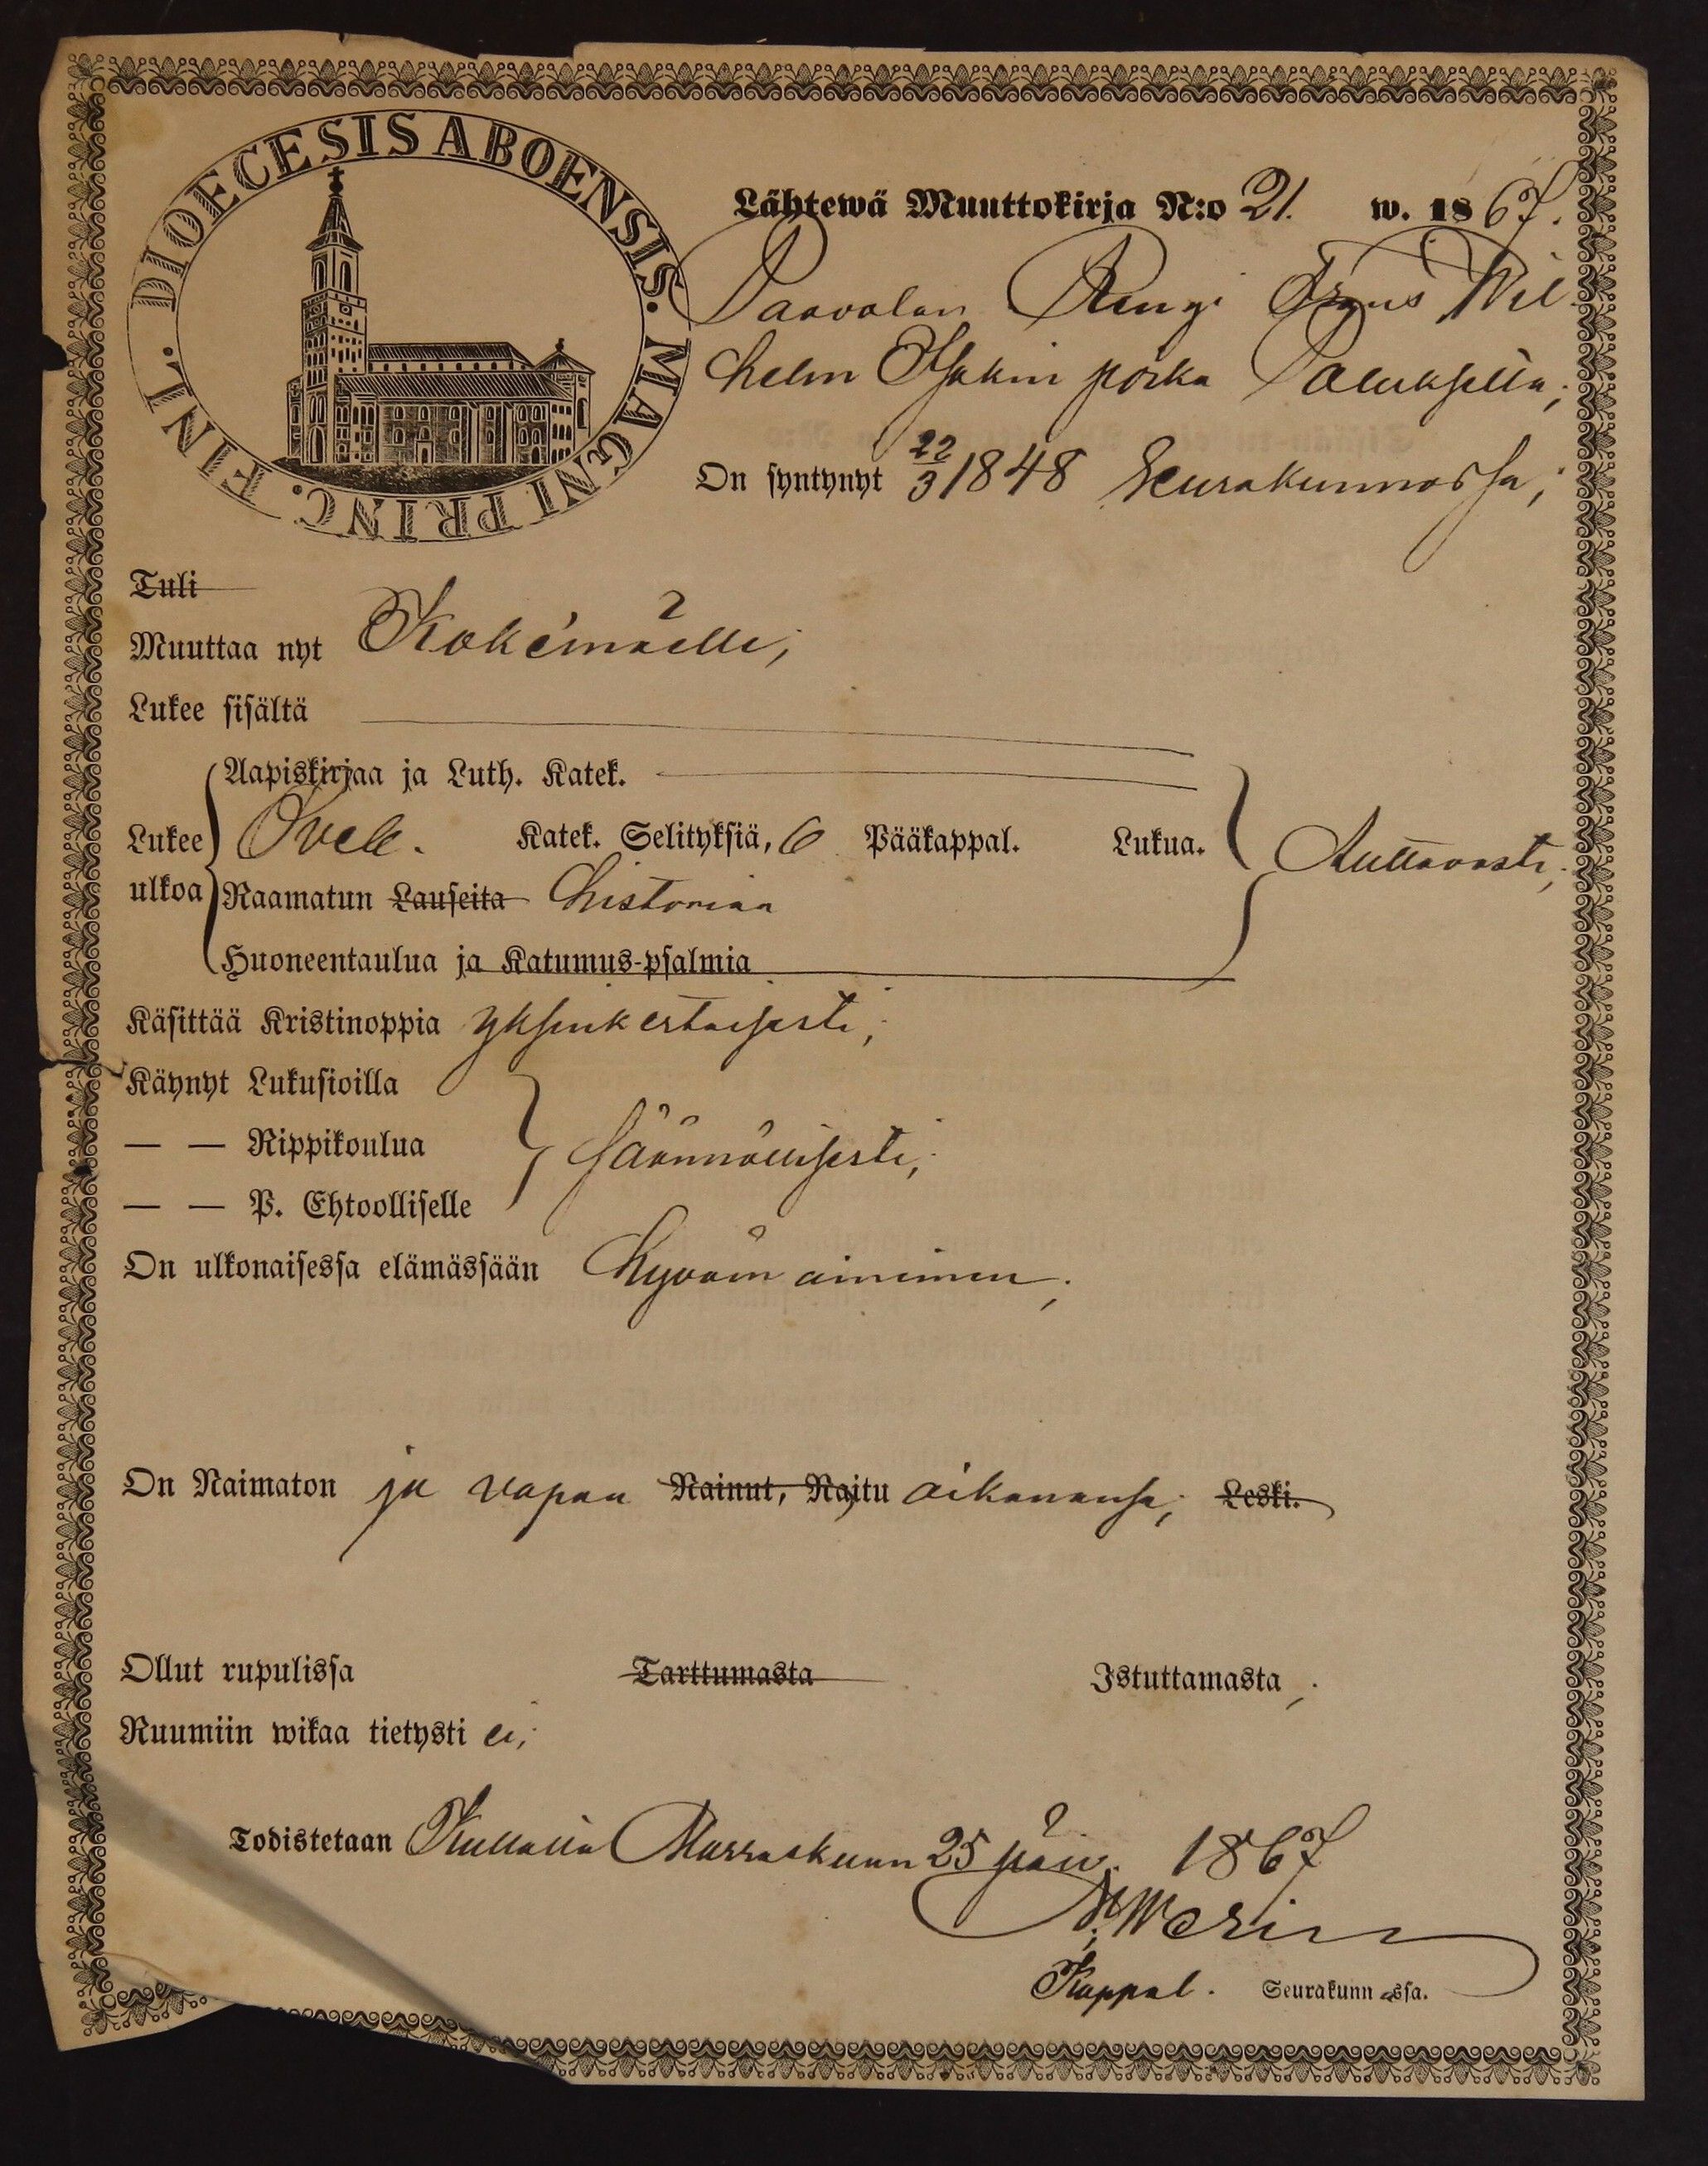 DIOECESIS ABOENSIS. MAGNI PRINC. FINL.
Lähtewä Muuttokirja N:o 21. w. 1867.
Paavolan Rengi Frans Wil-
helm Isakin poika Paluksella;
On syntynyt 22/3 1848 Seurakunnassa;
Tuli
Muuttaa nyt Kokemäelle;
Lukee sisältä
Aapiskirjaa ja Luth. Katek.
Lukee Sveb. Katek. Selityksiä, 6 Pääkappal. Lukua. Auttavasti;
ulkoa Raamatun Lauseita historiaa
Huoneentaulua ja Katumus-psalmia
Käsittää Kristinoppia yksinkertaisesti;
Käynyt Lukusioilla
— — Rippikoulua säännöllisesti;
— — P. Ehtoolliselle
On ulkonaisessa elämässään hyvämaininen;
On Naimaton ja vapaa Nainut, Naitu aikanansa; Leski.
Ollut rupulissa Tarttumasta Istuttamasta;
Ruumiin wikaa tietysti ei;
Todistetaan Kullaalla Marraskuun 25 päiv. 1867
Kappal. Seurakunnassa.